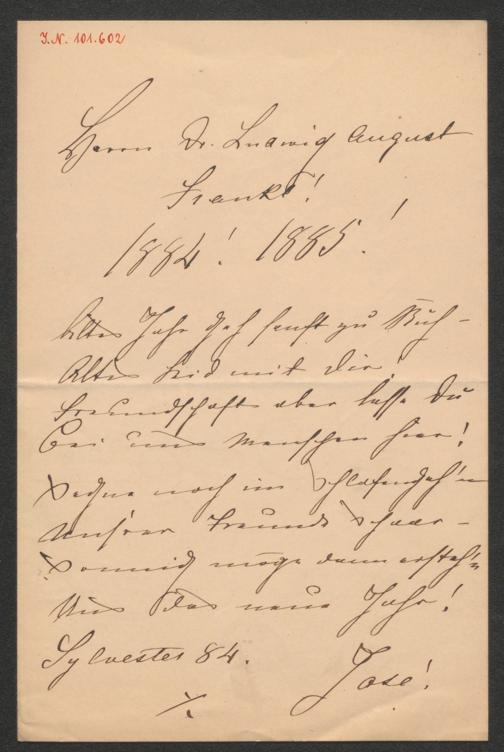 I.N. 101.602
Herrn Dr. Ludwig August
Frankl!
1884! 1885!
Altes Jahr geh sanft zu Ruh –
Altes Leid mit Dir,
Freundschaft aber lasse Du
Bei uns Menschen hier!
Segne noch im Schlafengeh'n
Unsrer Freunde Schaar –
Sonnig möge dann ersteh'n
Uns das neue Jahr!
Sylvester 84.
José!